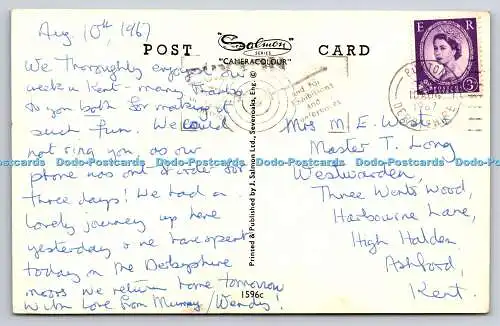 Aug 10th, 1967
POST
"Salmon"
SERIES
"CAMERACOLOUR"
CARD
We thoroughly enjoyed our
week in Kent - many thanks
to you both for making it
such fun. We could
not ring you, as our
phone was out of order for
three days! We had a
lovely journey up here
yesterday & we have spent
today in the Derbyshire
moors. We return home tomorrow
With Love from Murray/Wendy!
Printed & Published by J. Salmon Ltd., Sevenoaks, Eng. ©
1596c
and for
Exhibitions
and
Conferences
E R
POSTAGE
REVENUE
3D
1967
DERBYSHIRE
Mrs M E West &
Master T. Long
Westwarden,
Three Wents Wood,
Harbourne Lane,
High Halden,
Ashford,
Kent.
Dodo-Postcards Dodo-Postcards Dodo-Postcards Dodo-Postcards Dodo-Postcards Dodo-Postcards